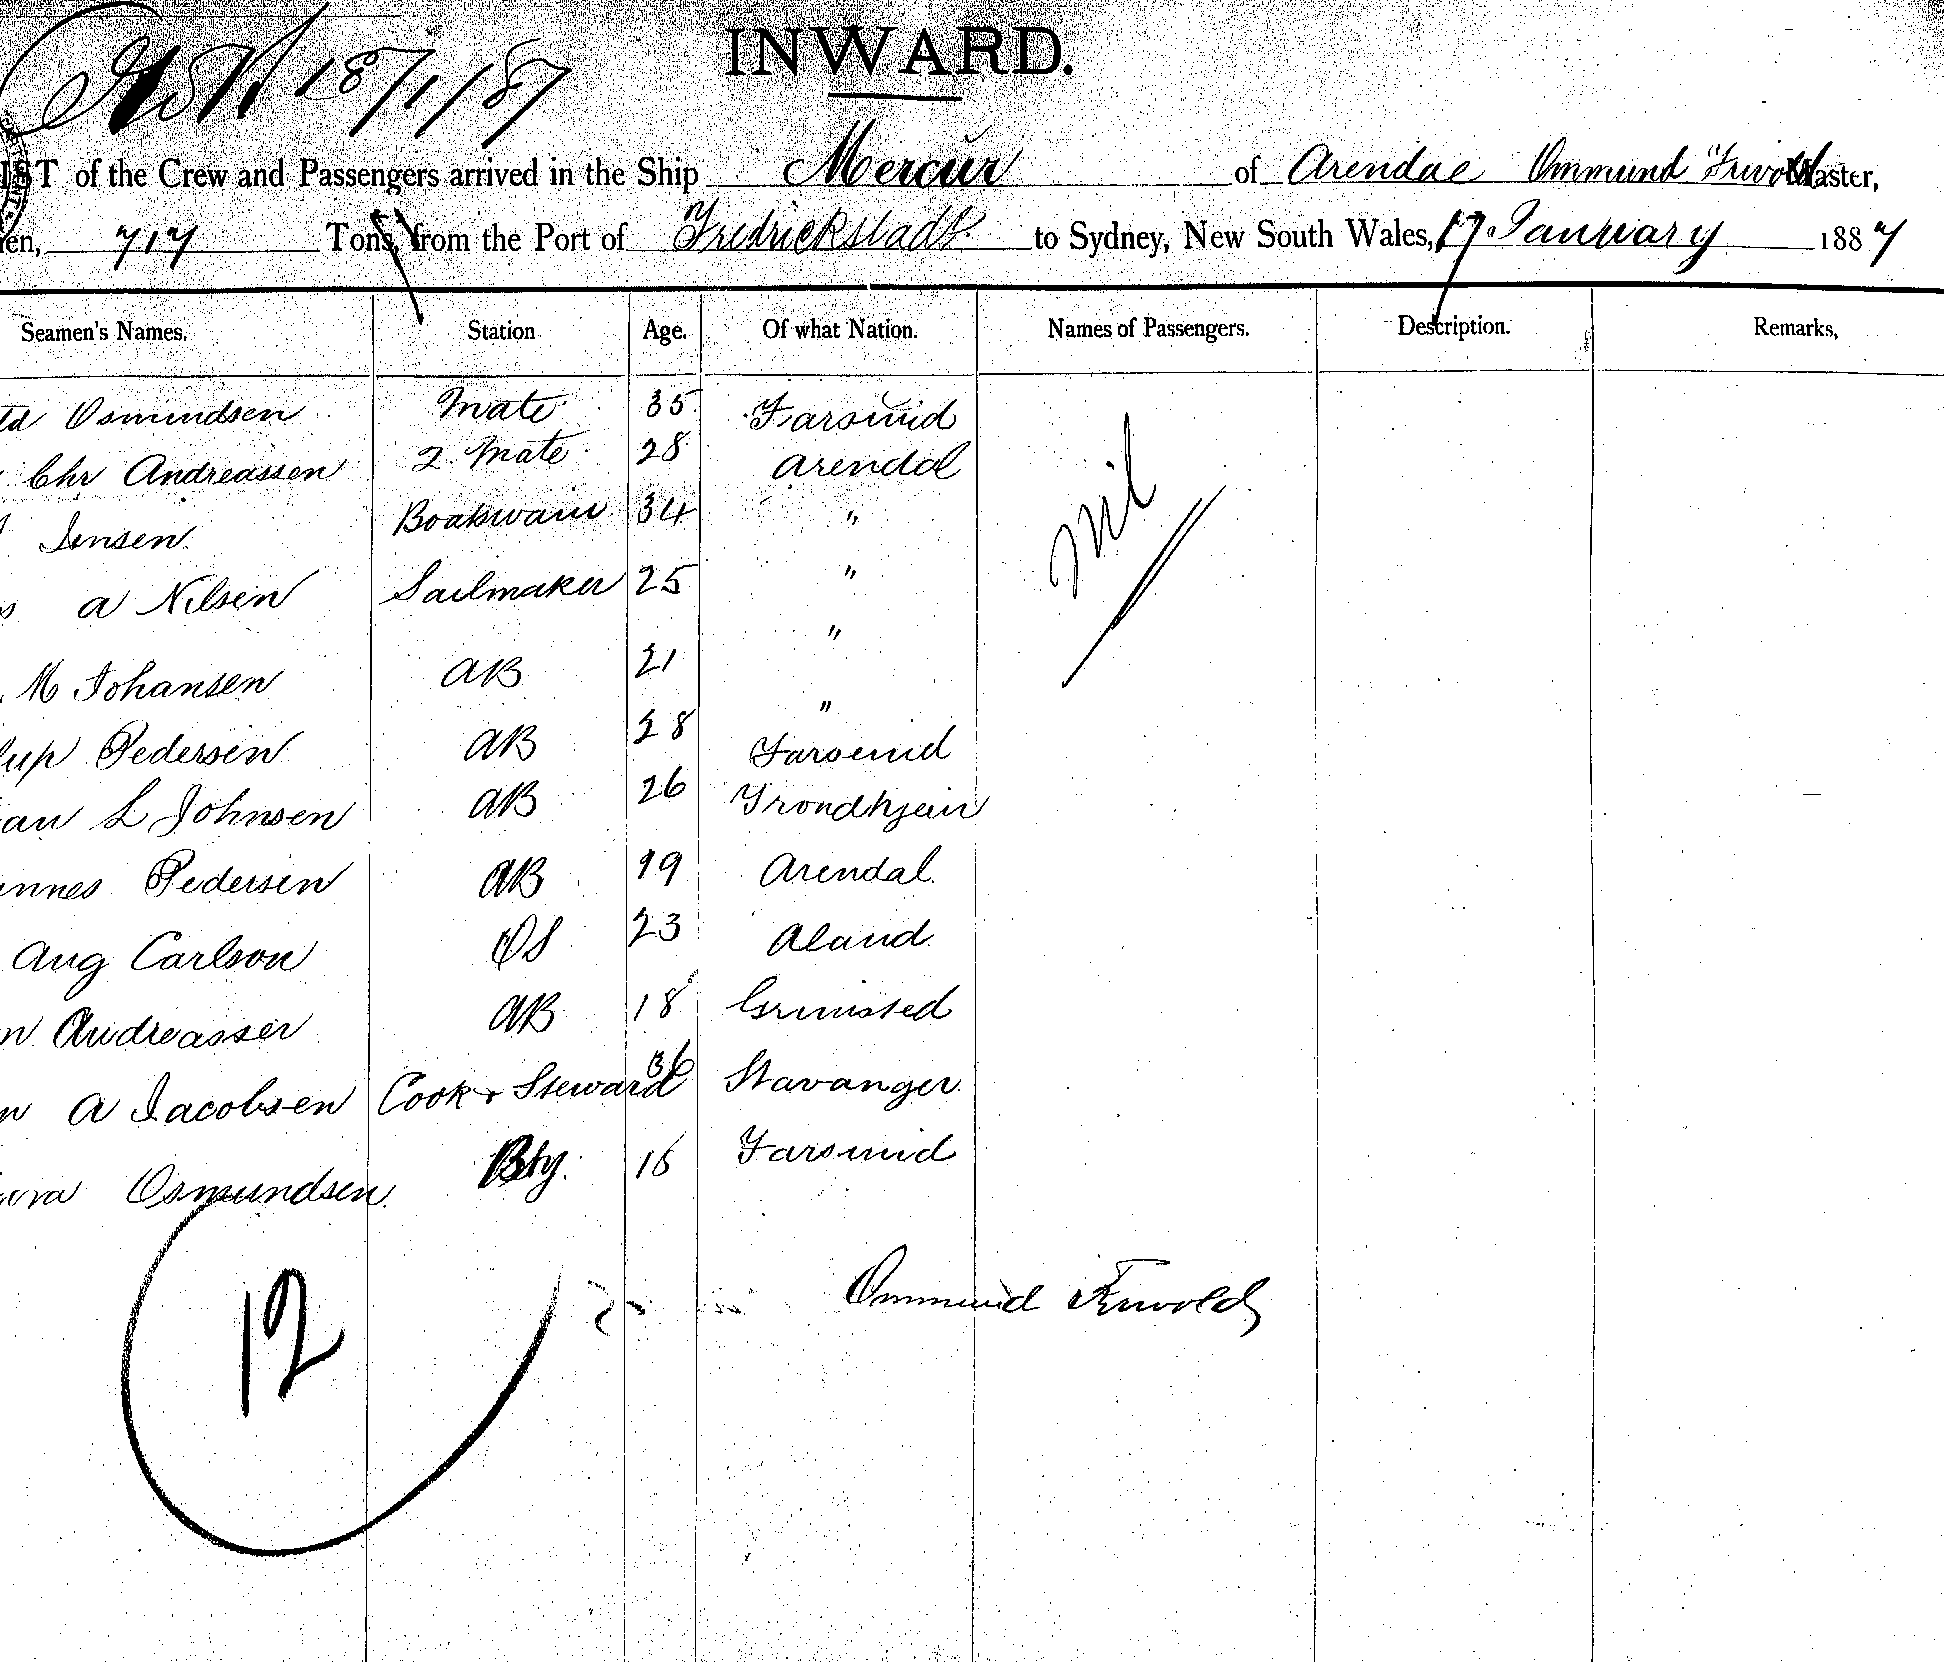 18/1/87
INWARD.
IST of the Crew and Passengers arrived in the Ship Mercur of Arendae Ommund Master,
en, 717 Tons, from the Port of Fredrickstadt to Sydney, New South Wales, 17. January 1887
Seamen's Names. Station Age. Of what Nation. Names of Passengers. Description. Remarks,
Osmundsen Mate 35 Farsund Nil
Chr Andreassen 2 Mate 28 Arendal
Jensen Boatswain 34 "
a Nilsen Sailmaker 25 "
M Johansen AB 21 "
Pedersen AB 28 "
Farsund
L Johnsen AB 26 Trondhjem
nnes Pedersen AB 19 Arendal.
Aug Carlson OS 23 Aland
n Andreassen AB 18 Grimsted
n A Jacobsen Cook & Steward 36 Stavanger
Osmundsen Boy. 16 Farsund
12
Ommund